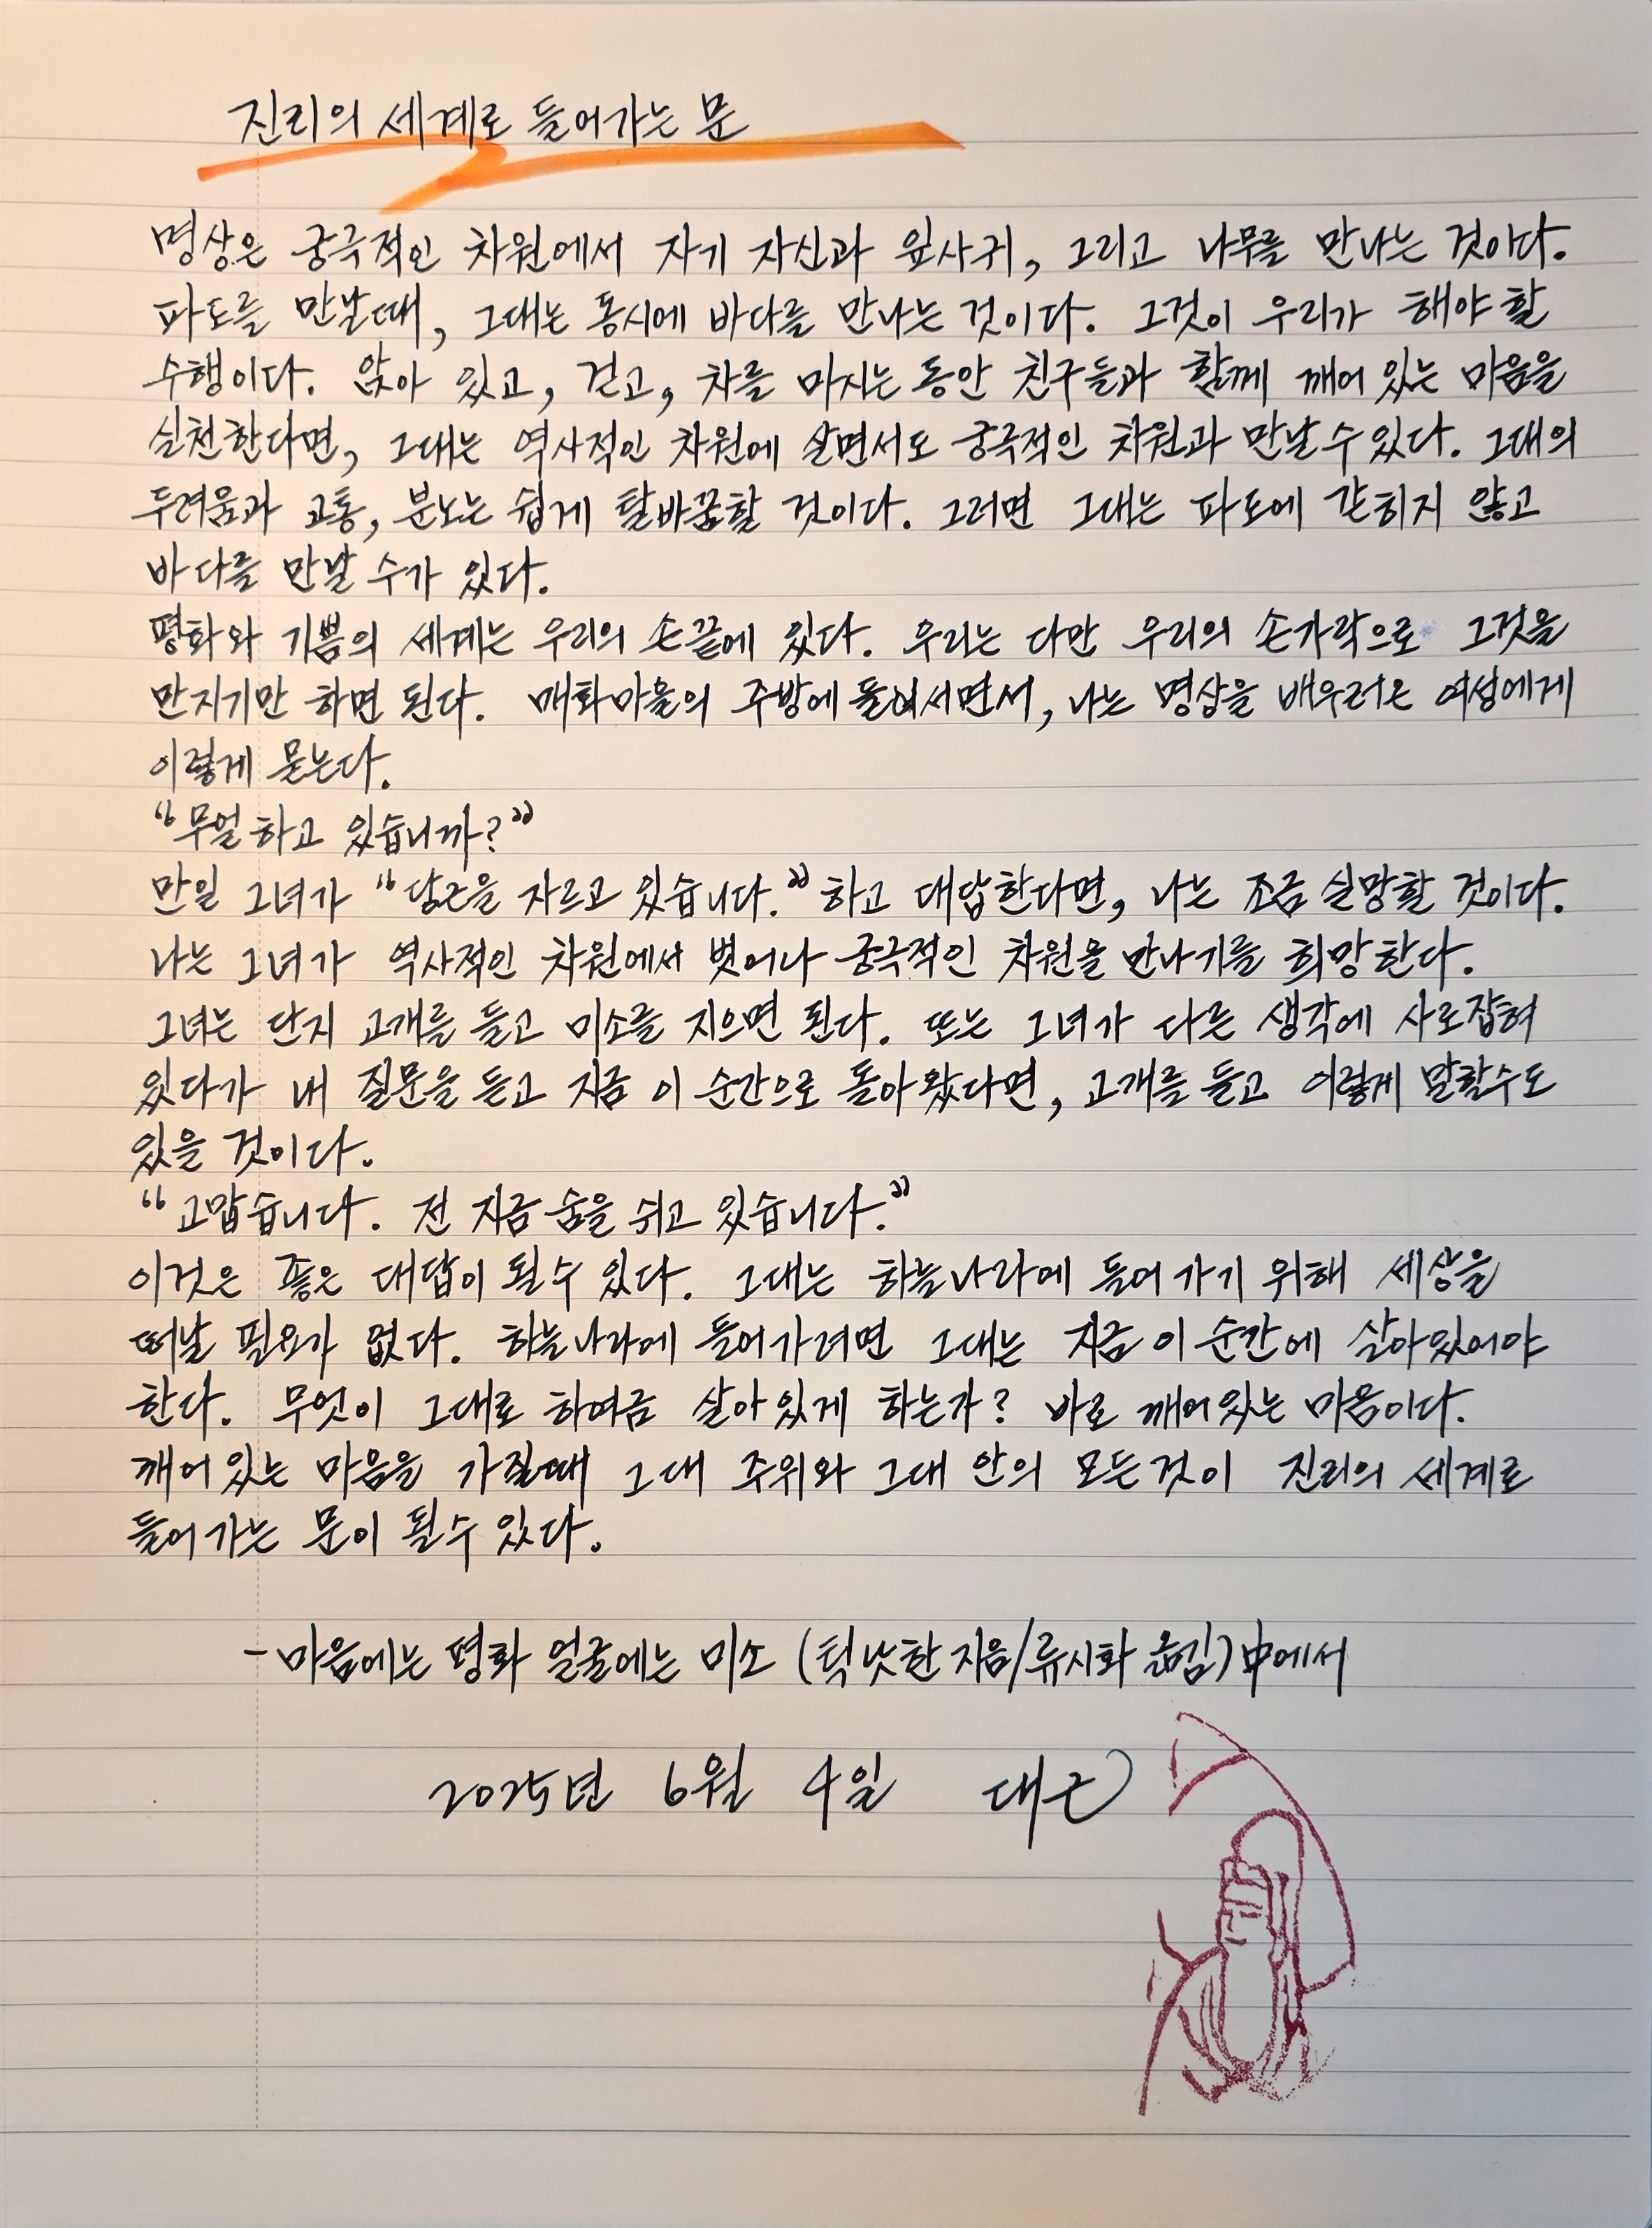 진리의 세계로 들어가는 문
명상은 궁극적인 차원에서 자기 자신과 잎사귀, 그리고 나무를 만나는 것이다.
파도를 만날때, 그대는 동시에 바다를 만나는 것이다. 그것이 우리가 해야 할
수행이다. 앉아 있고, 걷고, 차를 마시는 동안 친구들과 함께 깨어 있는 마음을
실천한다면, 그대는 역사적인 차원에 살면서도 궁극적인 차원과 만날 수 있다. 그대의
두려움과 고통, 분노는 쉽게 탈바꿈할 것이다. 그러면 그대는 파도에 갇히지 않고
바다를 만날 수가 있다.
평화와 기쁨의 세계는 우리의 손끝에 있다. 우리는 다만 우리의 손가락으로 그것을
만지기만 하면 된다. 매화마을의 주방에 들어서면서, 나는 명상을 배우러온 여성에게
이렇게 묻는다.
“무얼 하고 있습니까?”
만일 그녀가 “당근을 자르고 있습니다.” 하고 대답한다면, 나는 조금 실망할 것이다.
나는 그녀가 역사적인 차원에서 벗어나 궁극적인 차원을 만나기를 희망한다.
그녀는 단지 고개를 들고 미소를 지으면 된다. 또는 그녀가 다른 생각에 사로잡혀
있다가 내 질문을 듣고 지금 이 순간으로 돌아왔다면, 고개를 들고 이렇게 말할수도
있을 것이다.
“고맙습니다. 전 지금 숨을 쉬고 있습니다.”
이것은 좋은 대답이 될수 있다. 그대는 하늘나라에 들어가기 위해 세상을
떠날 필요가 없다. 하늘나라에 들어가려면 그대는 지금 이 순간에 살아있어야
한다. 무엇이 그대로 하여금 살아있게 하는가? 바로 깨어있는 마음이다.
깨어있는 마음을 가질때 그대 주위와 그대 안의 모든것이 진리의 세계로
들어가는 문이 될수 있다.
- 마음에는 평화 얼굴에는 미소 (틱낫한 지음/류시화 옮김)中에서
2025년 6월 4일 대근